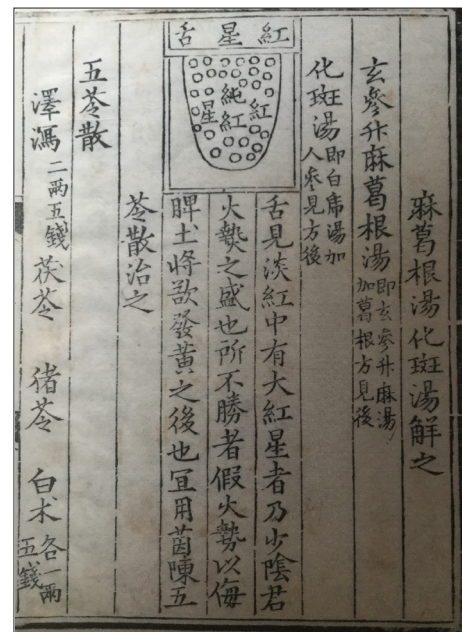 麻葛根湯化斑湯解之
玄參升麻葛根湯即玄參升麻湯加葛根方見後
化斑湯即白虎湯加人參見方後
紅星舌
紅
純紅
星
舌見淡紅中有大紅星者乃少陰君
火熱之盛也所不勝者假火勢以侮
脾土將欲發黃之後也冝用茵陳五
苓散治之
五苓散
澤瀉二兩五錢 茯苓 猪苓 白术各一兩五錢